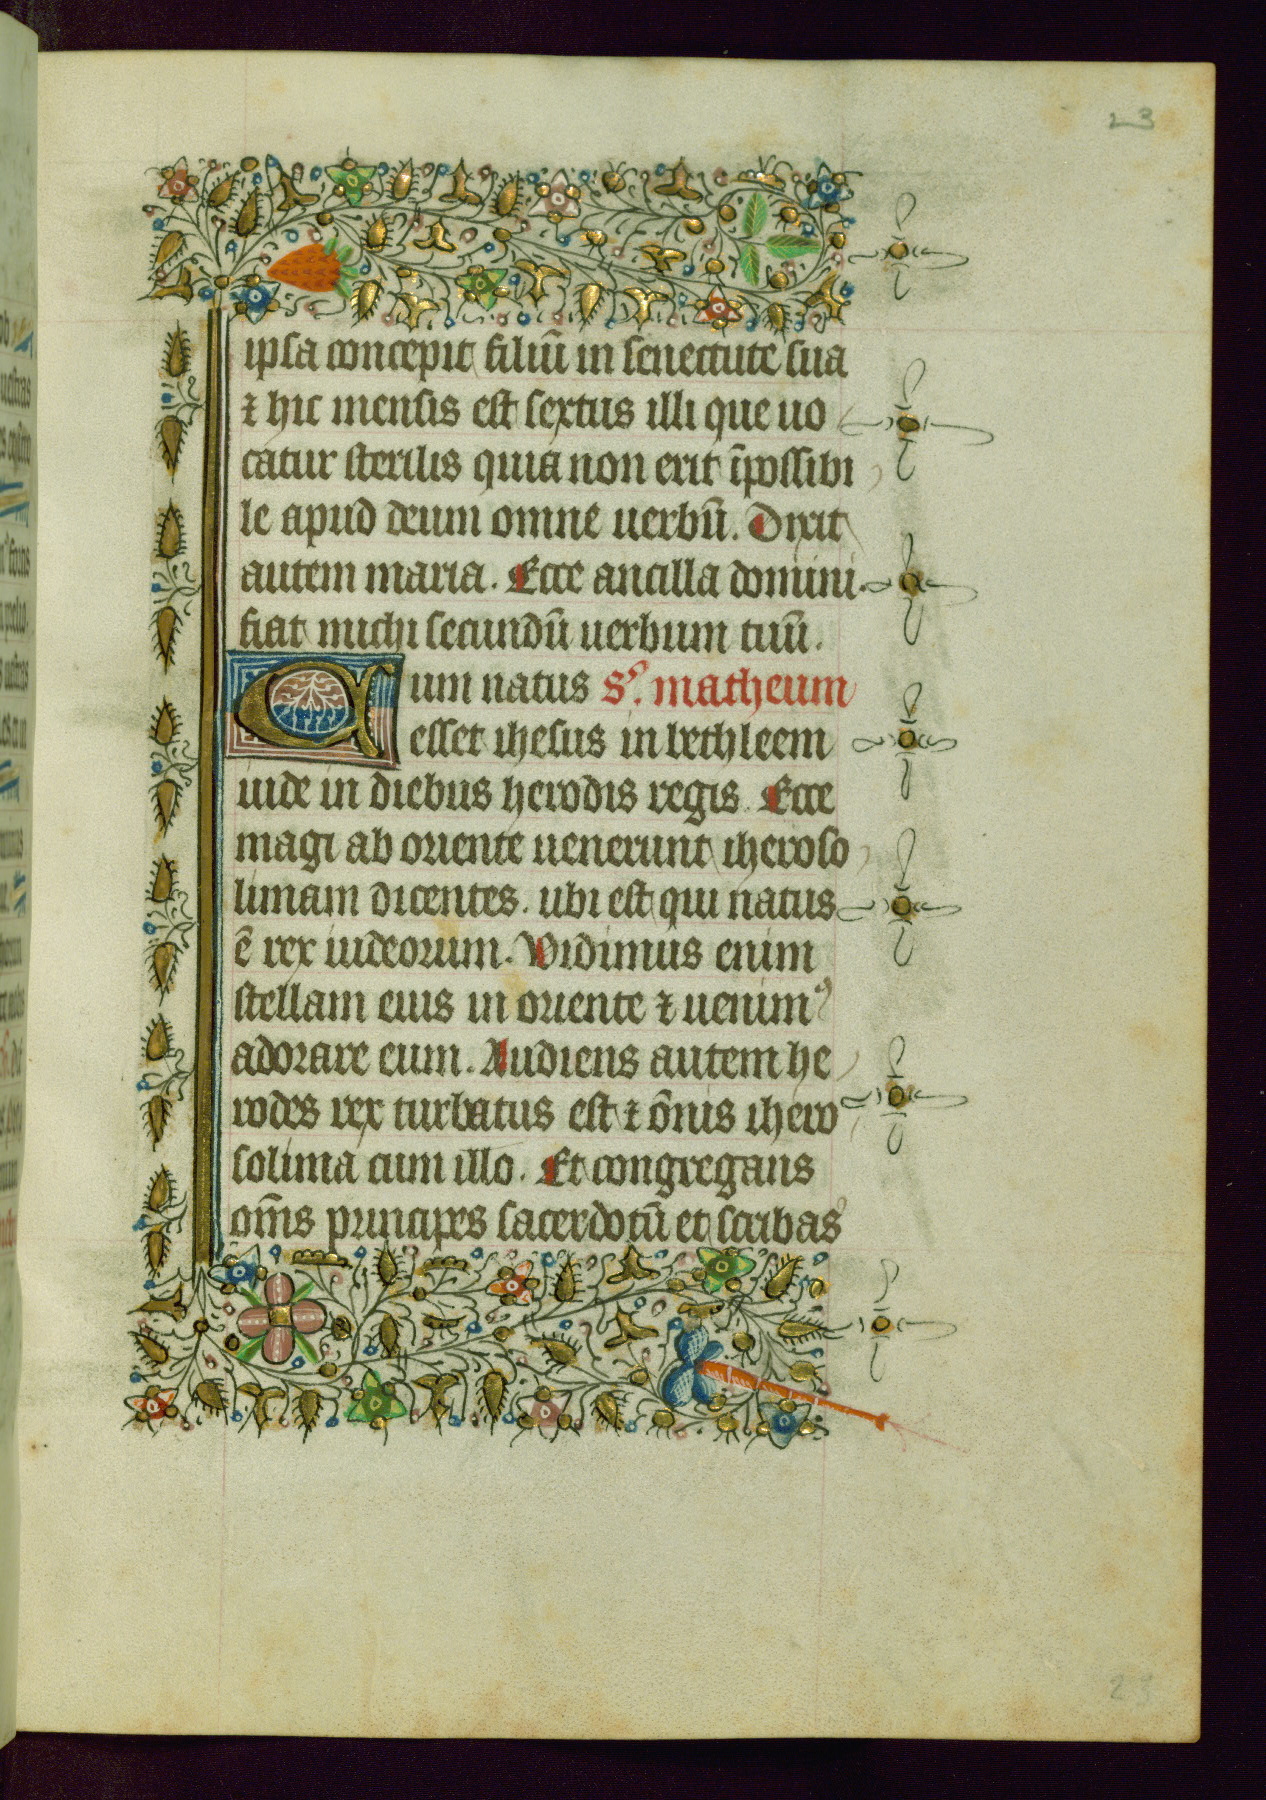 23
ipsa concepit filiū in senectute sua
⁊ hic mensis est sextus illi que uo
catur sterilis quia non erit īpossibi
le apud deum omne uerbū. Dixit
autem maria. Ecce ancilla domini.
fiat michi secundū uerbum tuū.
Cum natus sꝰ. matheum
esset ihesus in bethleem
iude in diebus herodis regis. Ecce
magi ab oriente uenerunt iheroso
limam dicentes. ubi est qui natus
ē rex iudeorum. Vidimus enim
stellam eius in oriente ⁊ uenimꝰ
adorare eum. Audiens autem he
rodes rex turbatus est ⁊ ōnis ihero
solima cum illo. Et congregans
om̄s principes sacerdotū et scribas
23